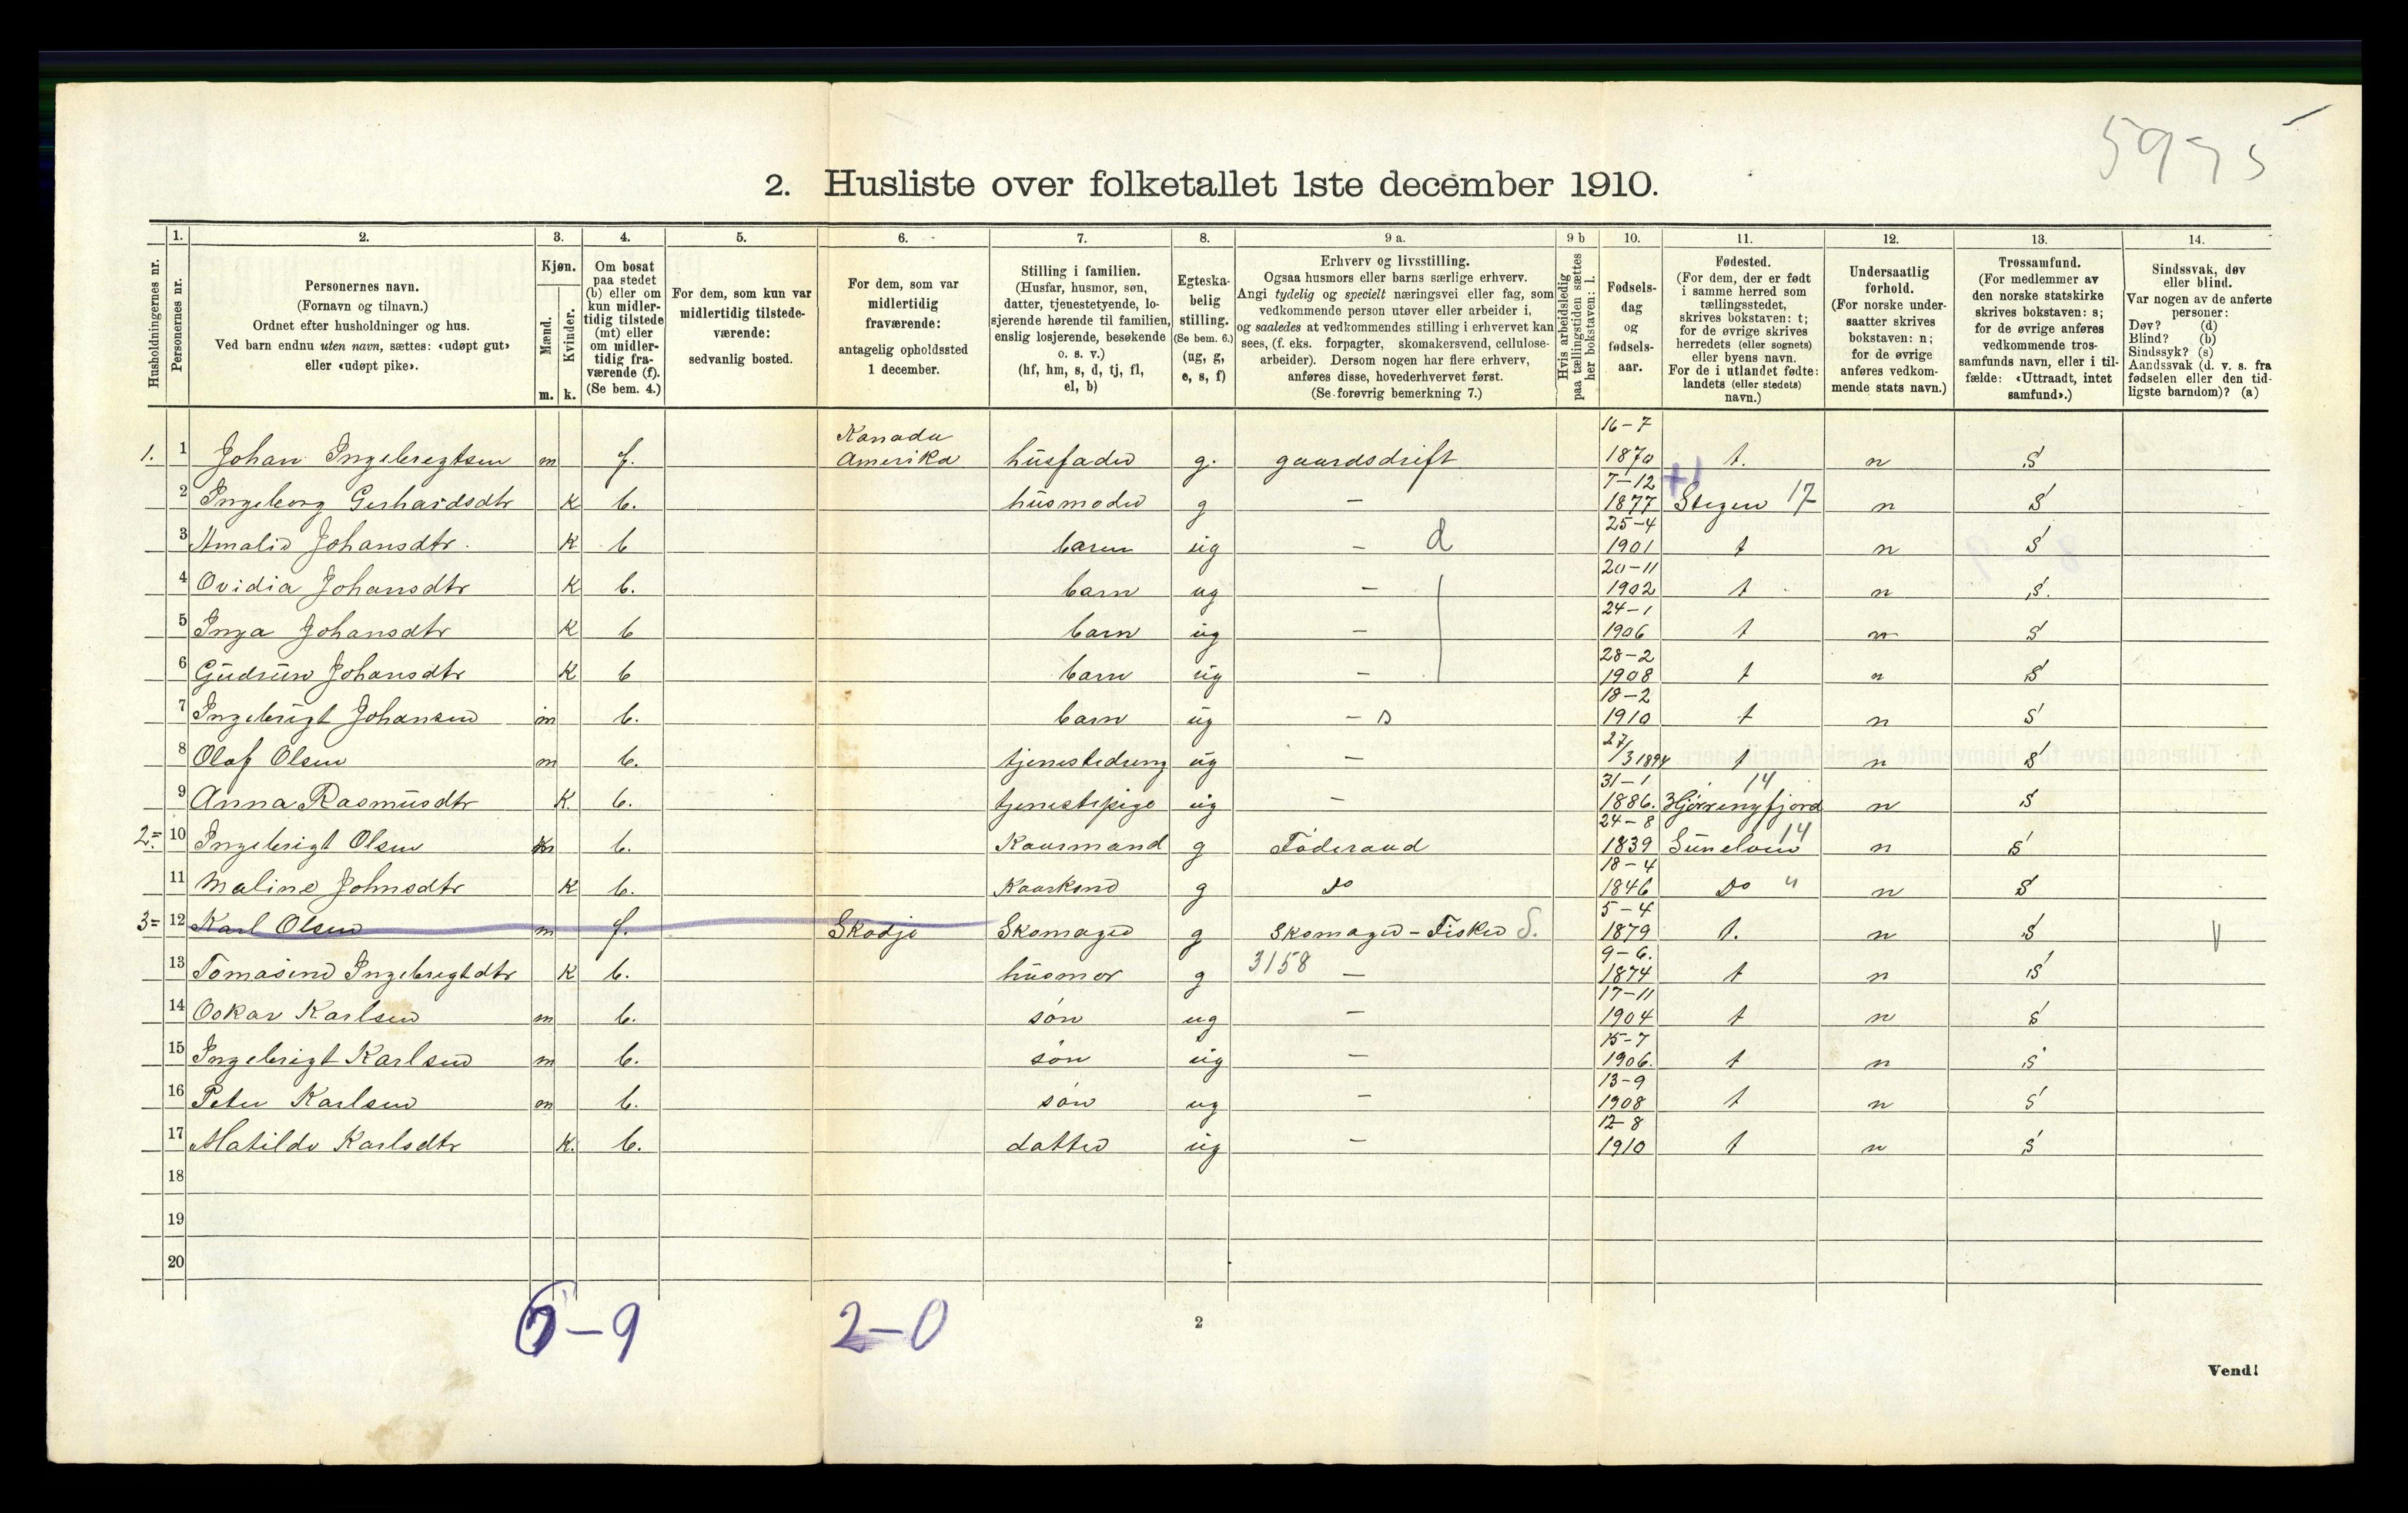 5975
2. Husliste over folketallet 1ste december 1910.
Husholdningernes nr.
1. 2. 3. 4. 5. 6. 7. 8. 9 a. 9 b 10. 11. 12. 13. 14.
Personernes nr.
Personernes navn.
(Fornavn og tilnavn.)
Ordnet efter husholdninger og hus.
Ved barn endnu uten navn, sættes: «udøpt gut»
eller «udøpt pike».
Kjøn.
Mænd.
Kvinder.
m. k.
Om bosat
paa stedet
(b) eller om
kun midler-
tidig tilstede
(mt) eller
om midler-
tidig fra-
værende (f).
(Se bem. 4.)
For dem, som kun var
midlertidig tilstede-
værende:
sedvanlig bosted.
For dem, som var
midlertidig
fraværende:
antagelig opholdssted
1 december.
Stilling i familien.
(Husfar, husmor, søn,
datter, tjenestetyende, lo-
sjerende hørende til familien,
enslig losjerende, besøkende
o. s. v.)
(hf, hm, s, d, tj, fl,
el, b)
Egteska-
belig
stilling.
(Se bem. 6.)
(ug, g,
e, s, f)
Erhverv og livsstilling.
Ogsaa husmors eller barns særlige erhverv.
Angi tydelig og specielt næringsvei eller fag, som
vedkommende person utøver eller arbeider i,
og saaledes at vedkommendes stilling i erhvervet kan
sees, (f. eks. forpagter, skomakersvend, cellulose-
arbeider). Dersom nogen har flere erhverv,
anføres disse, hovederhvervet først.
(Se forøvrig bemerkning 7.)
Hvis arbeidsledig
paa tællingstiden sættes
her bokstaven: l.
Fødsels-
dag
og
fødsels-
aar.
Fødested.
(For dem, der er født
i samme herred som
tællingsstedet,
skrives bokstaven: t;
for de øvrige skrives
herredets (eller sognets)
eller byens navn.
For de i utlandet fødte:
landets (eller stedets)
navn.)
Undersaatlig
forhold.
(For norske under-
saatter skrives
bokstaven: n;
for de øvrige
anføres vedkom-
mende stats navn.)
Trossamfund.
(For medlemmer av
den norske statskirke
skrives bokstaven: s;
for de øvrige anføres
vedkommende tros-
samfunds navn, eller i til-
fælde: «Uttraadt, intet
samfund».)
Sindssvak, døv
eller blind.
Var nogen av de anførte
personer:
Døv? (d)
Blind? (b)
Sindssyk? (s)
Aandssvak (d. v. s. fra
fødselen eller den tid-
ligste barndom)? (a)
1. 1 Johan Ingebregtsen m f. Kanada Amerika husfader g. gaardsdrift 16-7 1870 t. n S
2 Ingeborg Gerhardsdtr k b. husmoder g - 7-12 1877 +1 Stegen 17 n S
3 Amalie Johansdtr. k b baren ug - d 25-4 1901 t n S
4 Ovidia Johansdtr k b. barn ug - 20-11 1902 t n S.
5 Inga Johansdtr k b barn ug - 24-1 1906 t n S
6 Gudrun Johansdtr k b barn ug - 28-2 1908 t n S
7 Ingebrigt Johansen m b. barn ug - s 18-2 1910 t n S
8 Olaf Olsen m b. tjenestedreng ug - 27/3 1894 t n S
9 Anna Rasmusdtr K. b. tjenestepige ug - 31-1 1886. Hjørrengfjord 14 n S
2= 10 Ingebrigt Olsen m b. Kaarmand g Føderaad 24-8 1839 Sunelven 14 n S
11 Maline Johnsdtr k b. Kaarkone g Do 18-4 1846 Do " n S
3= 12 Karl Olsen m f. Skodje Skomager g Skomager - Fisker S. 5-4 1879 t. n S
13 Tomasine Ingebrigtdtr k b. husmor g 3158 - 9-6. 1874 t n S
14 Oskar Karlsen m b. søn ug - 17-11 1904 t n S
15 Ingebrigt Karlsen m b. søn ug - 15-7 1906. t n S
16 Peter Karlsen m b. søn ug - 13-9 1908 t n S
17 Matilde Karlsdtr k. b. datter ug - 12-8 1910 t n S
18
19
20
7-9 2-0
2
Vend!